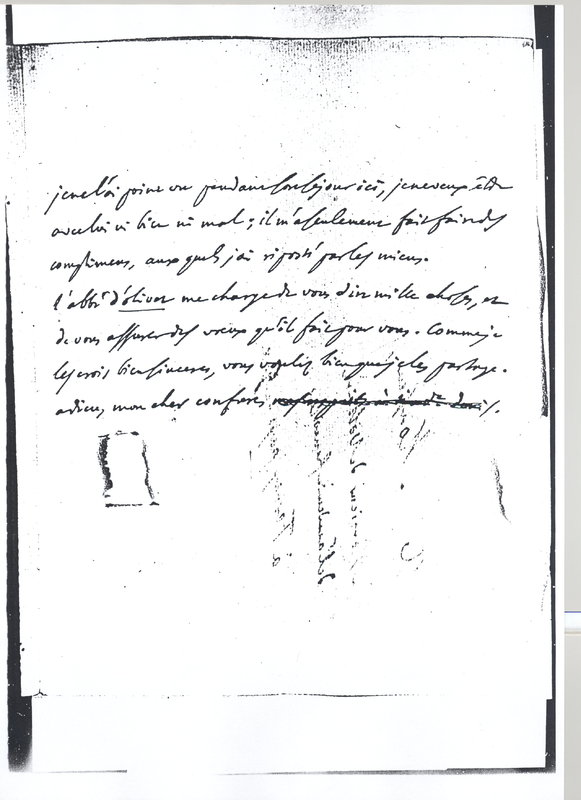 je ne l'ai point vu pendant son sejour ici, je ne veux être
avec lui ni bien ni mal; il m'a seulement fait faire des
complimens, aux quels j'ai riposté par les miens.
l'abbé d'olivet me charge de vous dire mille choses, et
de vous assurer des voeux qu'il fait pour vous. Comme je
les crois bien sinceres, vous voulez bien que je les partage.
adieu mon cher confrere